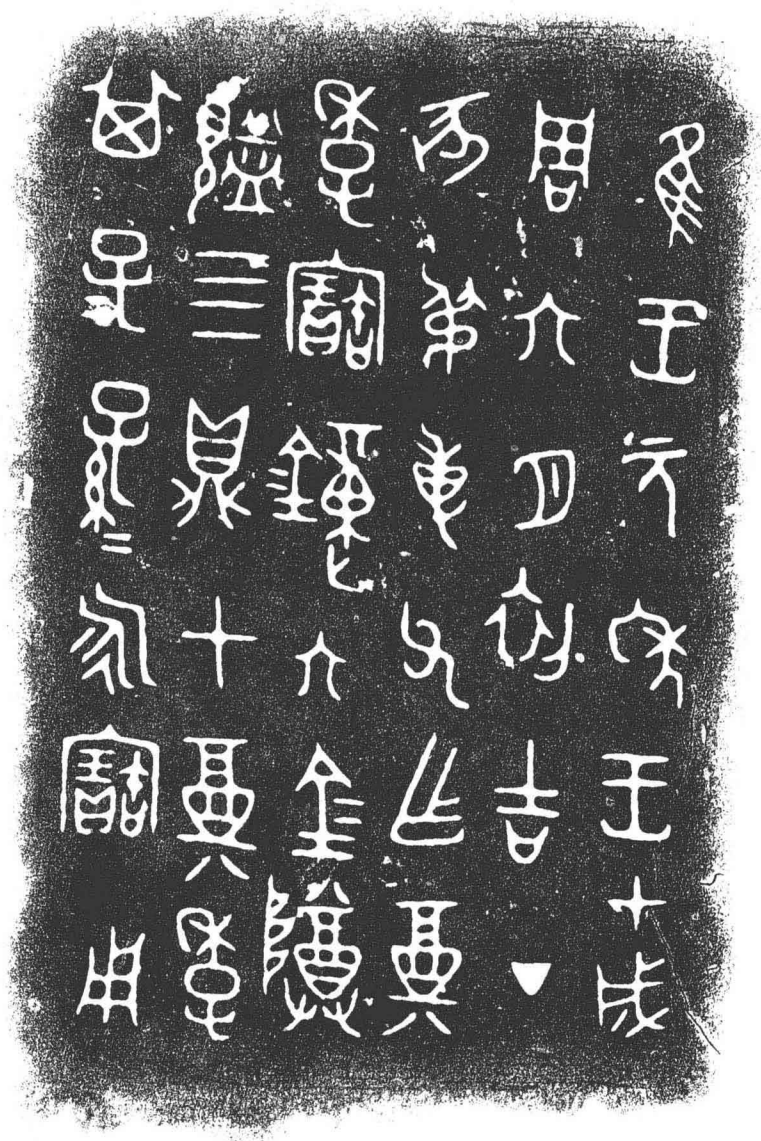 隹王元年王才成
周六月初吉丁
亥弔專父乍奠
季寶鐘六金尊
盨四鼎七奠季
其子子孫＝永寶用